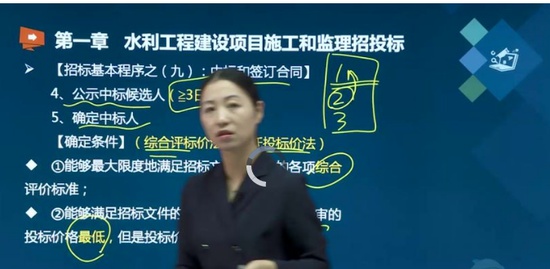 第一章 水利工程建设项目施工和监理招投标
【招标基本程序之（九）：中标和签订合同】
1
2
3
4、公示中标候选人（≥3日
5、确定中标人
【确定条件】（综合评标价法 投标价法）
①能够最大限度地满足招标文 的各项综合
评价标准；
②能够满足招标文件的 审的
投标价格最低，但是投标价